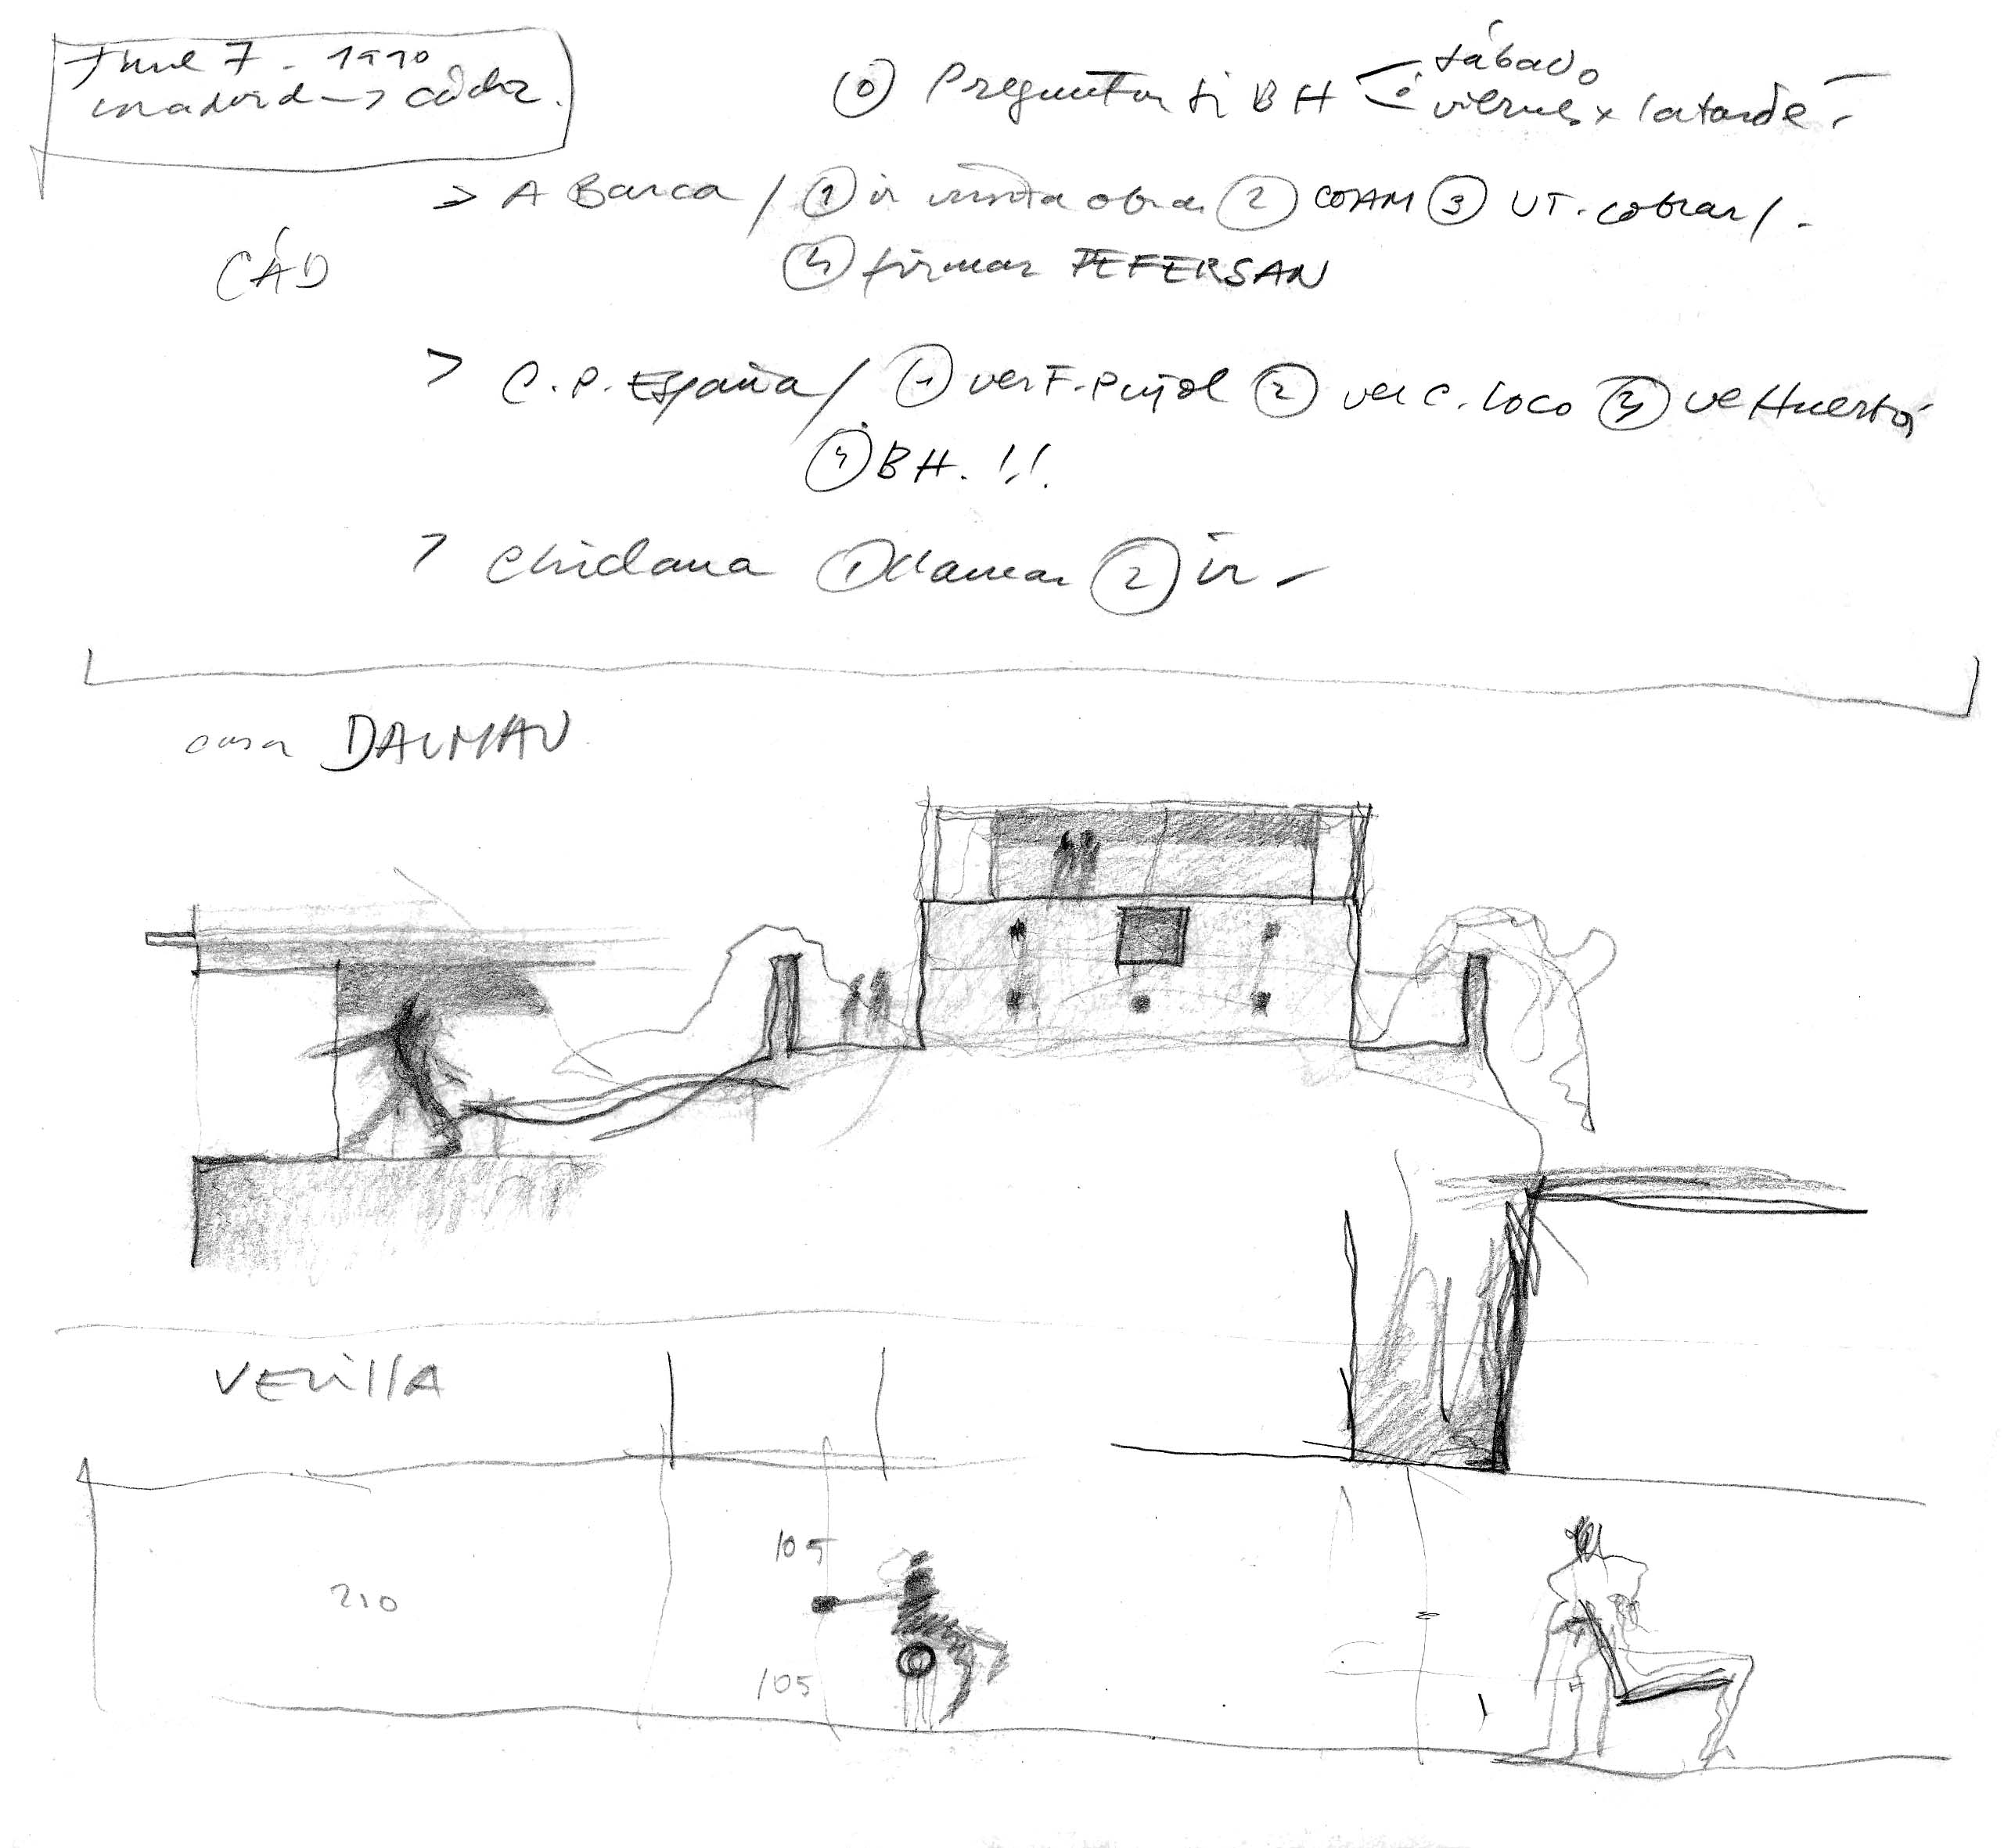 June 7 - 1990
madrid -> cádiz.
⓪ Preguntar si BH sábado
ó viernes x la tarde.
> A Barca / ① ir visita obras ② COAM ③ UT. cobrar /.
CÁD
④ firmar PEFERSAN
> C.P. España / ① ver F. Pujol ② ver C. Loco ③ ve Huerta
④ BH. !!
> Chiclana ① llamar ② ir -
casa DALMAU
105
210
105